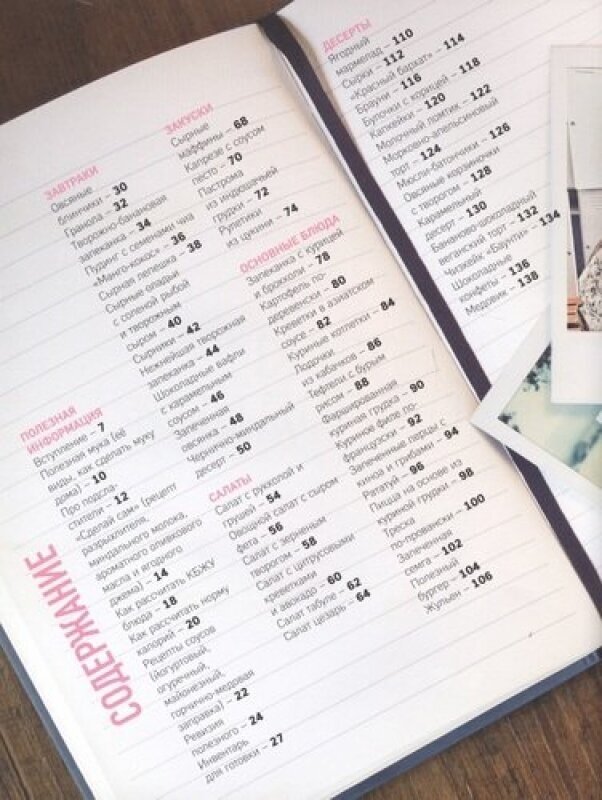 СОДЕРЖАНИЕ
ПОЛЕЗНАЯ
ИНФОРМАЦИЯ
Вступление – 7
Полезная мука (её
виды, как сделать муку
дома) – 10
Про подсла-
стители – 12
«Сделай сам» (рецепт
разрыхлителя,
миндального молока,
ароматного оливкового
масла и ягодного
джема) – 14
Как рассчитать КБЖУ
блюда – 18
Как рассчитать норму
калорий – 20
Рецепты соусов
(йогуртовый,
огуречный,
майонезный,
горчично-медовая
заправка) – 22
Ревизия
полезного – 24
Инвентарь
для готовки – 27
ЗАВТРАКИ
Овсяные
блинчики – 30
Гранола – 32
Творожно-банановая
запеканка – 34
Пудинг с семенами чиа
«Манго-кокос» – 36
Сырная лепешка – 38
Сырные оладьи
с соленой рыбой
и творожным
сыром – 40
Сырники – 42
Нежнейшая творожная
запеканка – 44
Шоколадные вафли
с карамельным
соусом – 46
Запеченная
овсянка – 48
Чернично-миндальный
десерт – 50
САЛАТЫ
Салат с рукколой и
грушей – 54
Овощной салат с сыром
фета – 56
Салат с зерненым
творогом – 58
Салат с цитрусовыми
креветками
и авокадо – 60
Салат табуле – 62
Салат цезарь – 64
ЗАКУСКИ
Сырные
маффины – 68
Капрезе с соусом
песто – 70
Пастрома
из индюшачьей
грудки – 72
Рулетики
из цукини – 74
ОСНОВНЫЕ БЛЮДА
Запеканка с курицей
и брокколи – 78
Картофель по-
деревенски – 80
Креветки в азиатском
соусе – 82
Куриные котлетки – 84
Лодочки
из кабачков – 86
Тефтели с бурым
рисом – 88
Фаршированная
куриная грудка – 90
Куриное филе по-
французски – 92
Запечённые перцы с
киноа и грибами – 94
Рататуй – 96
Пицца на основе из
куриной грудки – 98
Треска
по-провански – 100
Запеченная
семга – 102
Полезный
бургер – 104
Жульен – 106
ДЕСЕРТЫ
Ягодный
мармелад – 110
Сырки – 112
«Красный бархат» – 114
Брауни – 116
Булочки с корицей – 118
Капкейки – 120
Молочный ломтик – 122
Морковно-апельсиновый
торт – 124
Мюсли-батончики – 126
Овсяные корзиночки
с творогом – 128
Карамельный
десерт – 130
Бананово-шоколадный
веганский торт – 132
Чизкейк «Баунти» – 134
Шоколадные
конфеты – 136
Медовик – 138